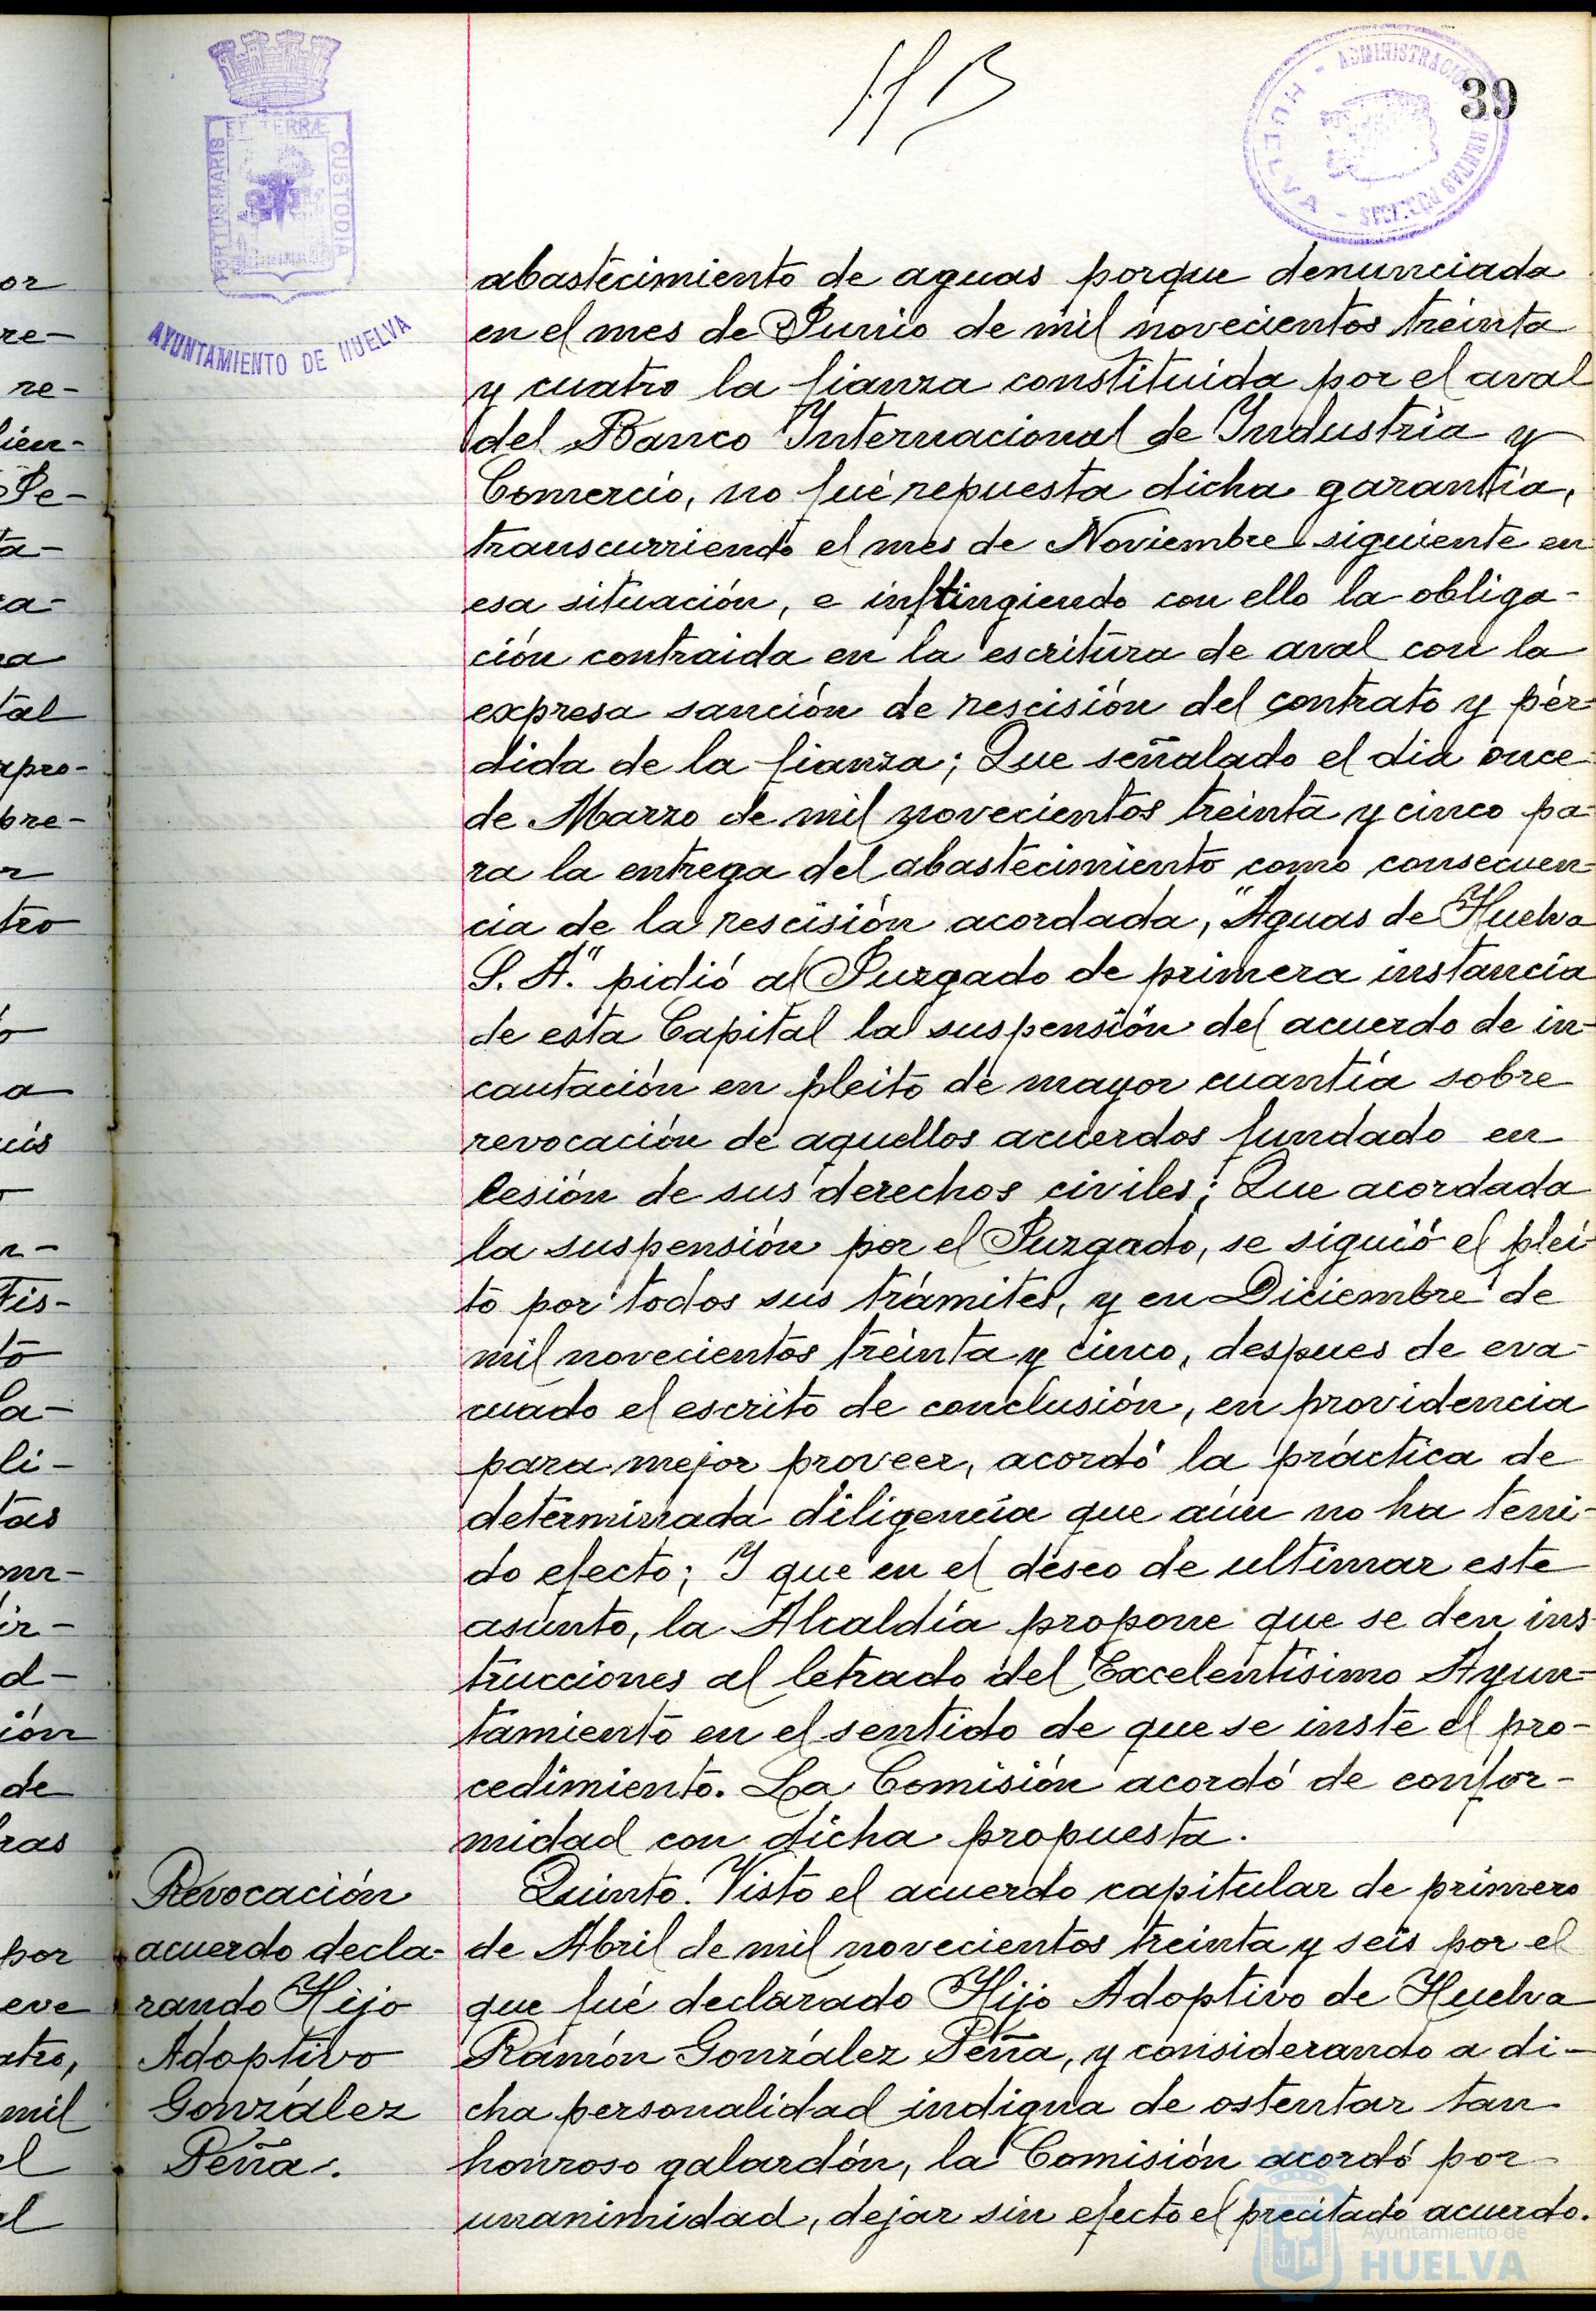 39
ADMINISTRACIÓN
HUELVA
PORTUS MARIS ET TERRÆ CUSTODIA
AYUNTAMIENTO DE HUELVA
abastecimiento de aguas porque denunciada
en el mes de Junio de mil novecientos treinta
y cuatro la fianza constituida por el aval
del Banco Internacional de Industria y
Comercio, no fué repuesta dicha garantía,
transcurriendo el mes de Noviembre siguiente en
esa situación, e infringiendo con ello la obliga-
ción contraida en la escritura de aval con la
expresa sanción de rescisión del contrato y pér-
dida de la fianza; Que señalado el dia once
de Marzo de mil novecientos treinta y cinco pa-
ra la entrega del abastecimiento como consecuen-
cia de la rescisión acordada, "Aguas de Huelva
S. A." pidió al Juzgado de primera instancia
de esta Capital la suspensión del acuerdo de in-
cautación en pleito de mayor cuantía sobre
revocación de aquellos acuerdos fundado en
lesión de sus derechos civiles; Que acordada
la suspensión por el Juzgado, se siguió el plei-
to por todos sus trámites, y en Diciembre de
mil novecientos treinta y cinco, despues de eva-
cuado el escrito de conclusión, en providencia
para mejor proveer, acordó la práctica de
determinada diligencia que aún no ha teni-
do efecto; Y que en el deseo de ultimar este
asunto, la Alcaldía propone que se den ins-
trucciones al letrado del Excelentísimo Ayun-
tamiento en el sentido de que se inste el pro-
cedimiento. La Comisión acordó de confor-
midad con dicha propuesta.
Revocación
acuerdo decla-
rando Hijo
Adoptivo
González
Peña.
Quinto. Visto el acuerdo capitular de primero
de Abril de mil novecientos treinta y seis por el
que fué declarado Hijo Adoptivo de Huelva
Ramón González Peña, y considerando a di-
cha personalidad indigna de ostentar tan
honroso galardón, la Comisión acordó por
unanimidad, dejar sin efecto el precitado acuerdo.
Ayuntamiento de
HUELVA